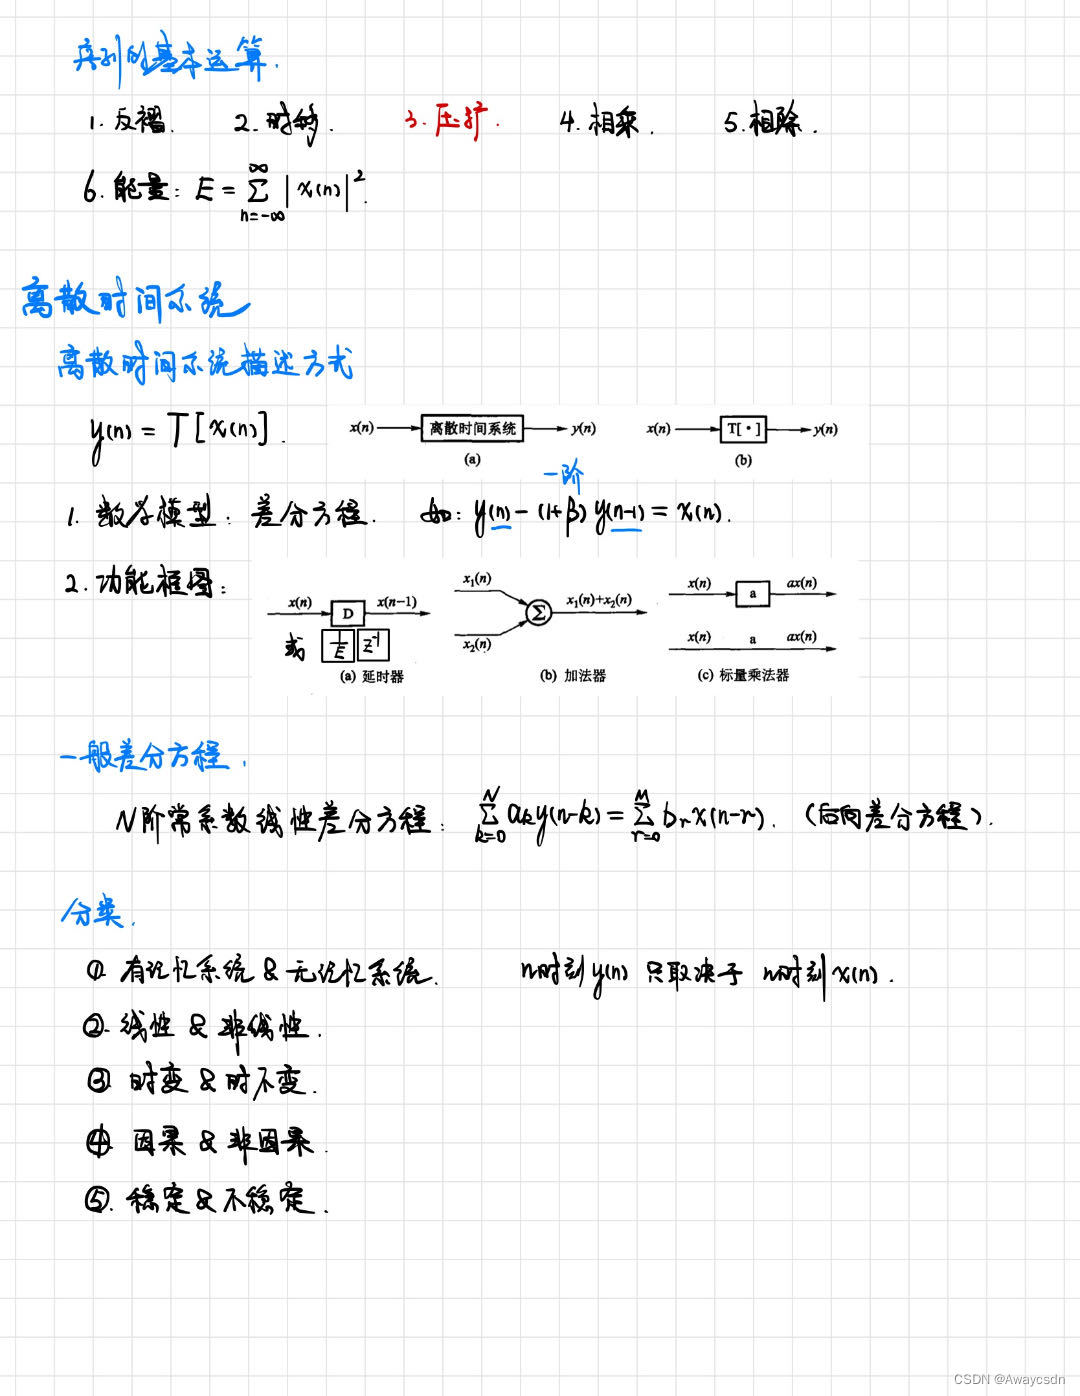 序列的基本运算.
1. 反褶. 2. 时移. 3. 压扩. 4. 相乘. 5. 相除.
6. 能量: E = ∑_{n=-∞}^{∞} |x(n)|².
离散时间系统
离散时间系统描述方式
y(n) = T[x(n)]. x(n) 离散时间系统 y(n) x(n) T[·] y(n)
(a) (b)
一阶
1. 数学模型: 差分方程. 如: y(n) - (1+β) y(n-1) = x(n).
2. 功能框图:
x(n) D x(n-1) x₁(n) x₂(n) Σ x₁(n)+x₂(n) x(n) a ax(n)
或 1/E z⁻¹ x(n) a ax(n)
(a) 延时器 (b) 加法器 (c) 标量乘法器
一般差分方程.
N阶常系数线性差分方程: ∑_{k=0}^{N} aₖy(n-k) = ∑_{r=0}^{M} bᵣx(n-r). (后向差分方程).
分类.
① 有记忆系统 & 无记忆系统. n时刻y(n) 只取决于 n时刻x(n).
②. 线性 & 非线性.
③ 时变 & 时不变.
④ 因果 & 非因果.
⑤. 稳定 & 不稳定.
CSDN @Awaycsdn